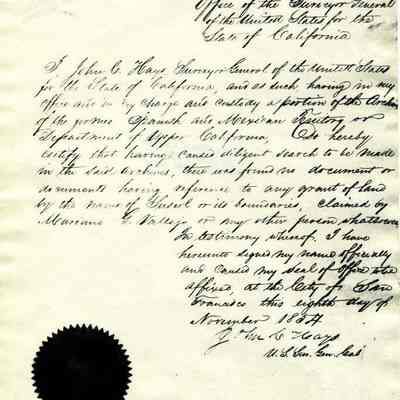 Office of the Surveyor General
of the United States for the
State of California
I John C. Hays Surveyor General of the United States
for the State of California, and as such having in my
office and in my charge and custody a portion of the Archives
of the former Spanish and Mexican Territory or
Department of Upper California, Do hereby
certify that having caused diligent search to be made
in the said Archives, there was found no document or
documents having reference to any grant of land
by the name of Suscol or its boundaries, claimed by
Mariano G. Vallejo or any other person whatsoever
In testimony whereof, I have
hereunto signed my name officially
and caused my seal of office to be
affixed, at the City of San
Francisco this eighth day of
November 1854
Jno C Hays
U.S. Sur. Gen. Cal